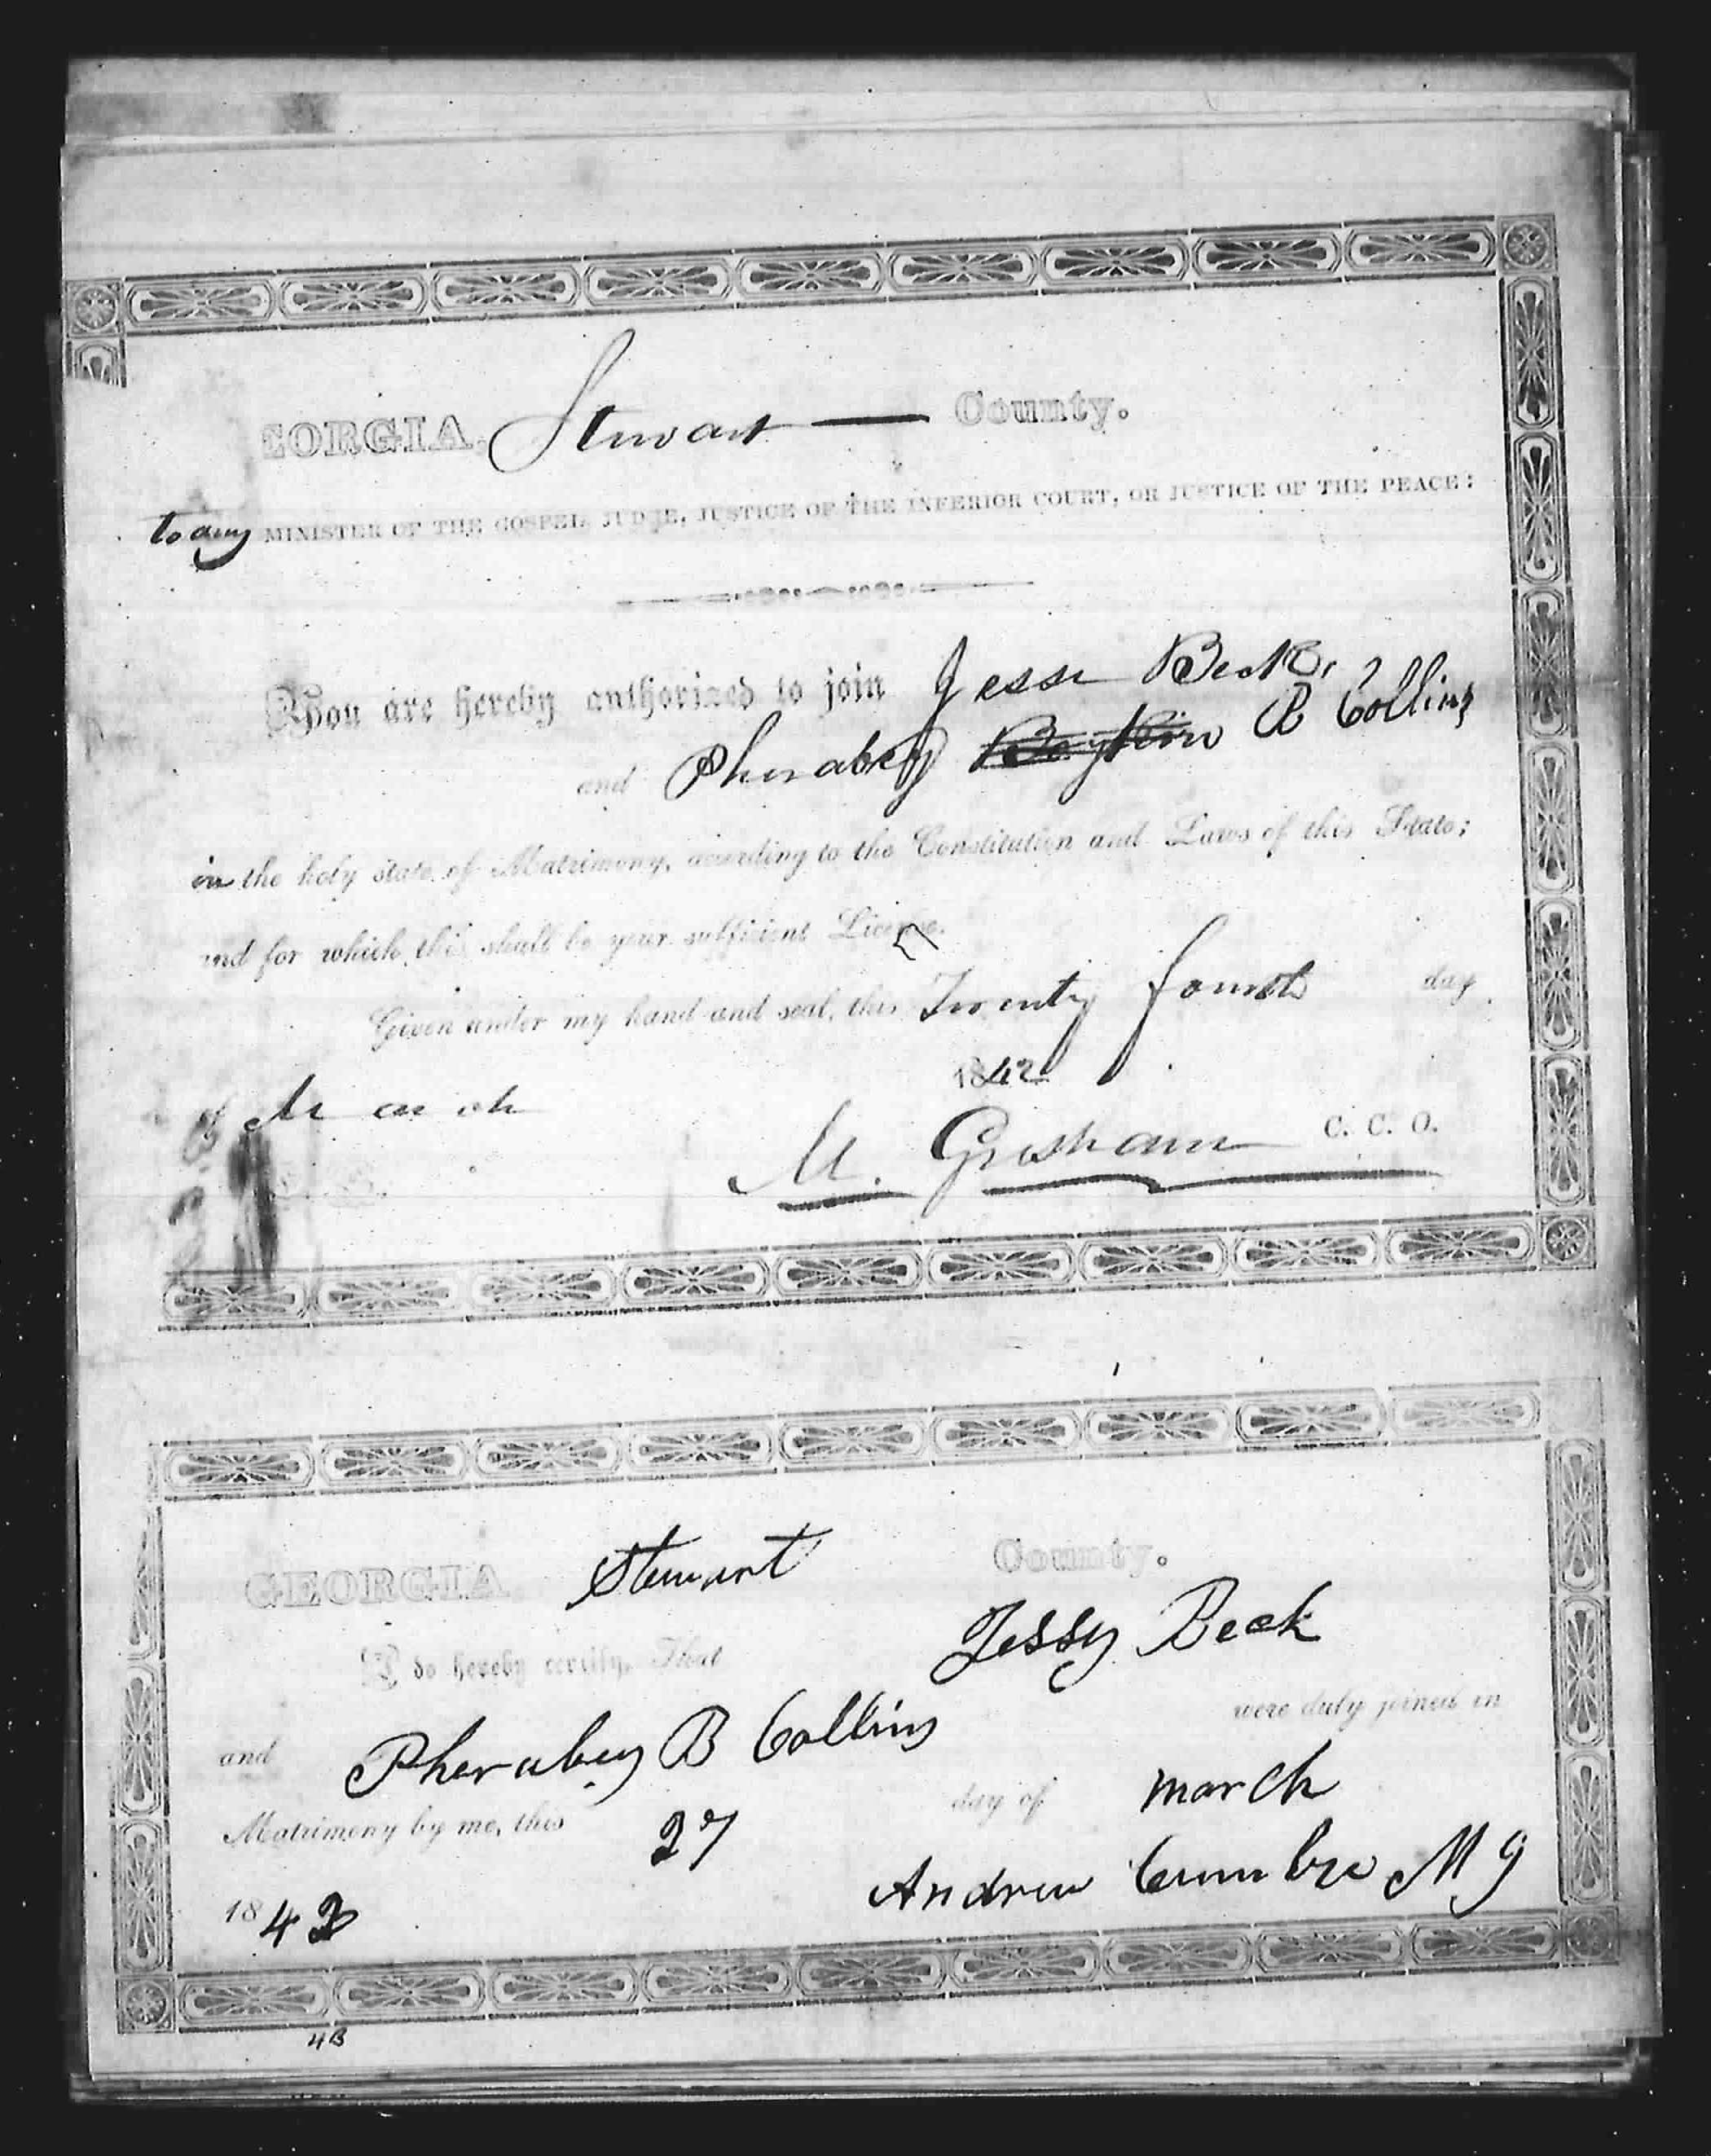 EORGIA, Stewart — County.
to any MINISTER OF THE GOSPEL, JUDGE, JUSTICE OF THE INFERIOR COURT, OR JUSTICE OF THE PEACE:
You are hereby authorized to join Jesse Beck,
and Pherabey Boykin B Collins
in the holy state of Matrimony, according to the Constitution and Laws of this State;
and for which this shall be your sufficient License.
Given under my hand and seal, this Twenty fourth day
of March 1842
M. Gresham C. C. O.
GEORGIA Stewart County.
I do hereby certify, That Jessy Beck
and Pherabey B Collins were duly joined in
Matrimony by me, this 27 day of march
1842 Andrew Cumbie M G
4B